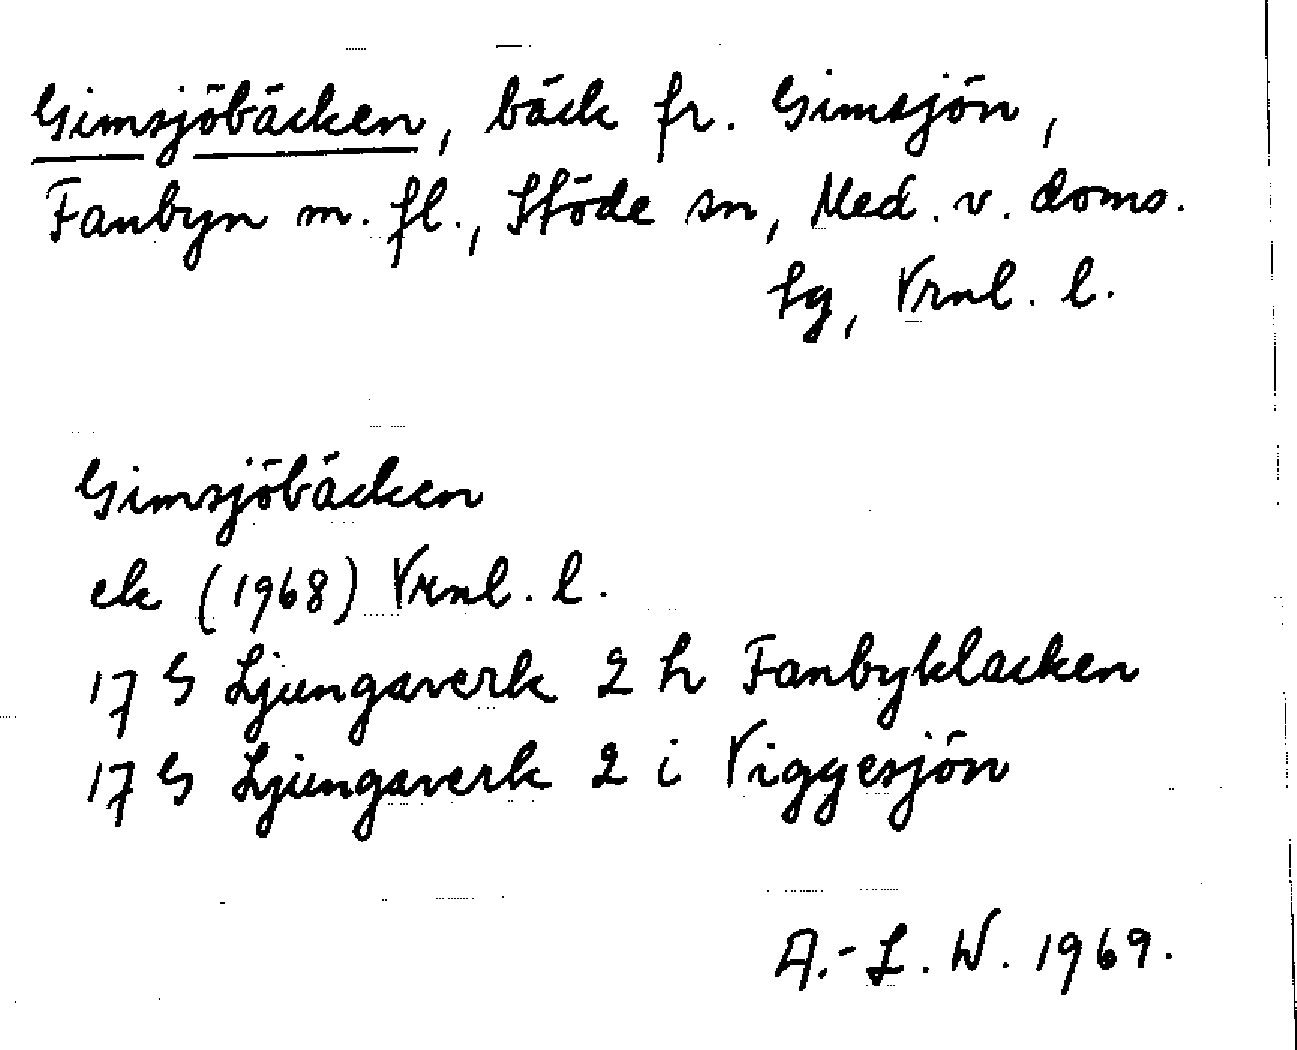 Gimsjöbäcken, bäck fr. Gimsjön,
Fanbyn m. fl., Stöde sn, Med. v. doms.
sg, Vrnl. l.
Gimsjöbäcken
ek (1968) Vrnl. l.
17 G Ljungaverk 2 h Fanbyklacken
17 G Ljungaverk 2 i Viggesjön
A.-L. W. 1969.